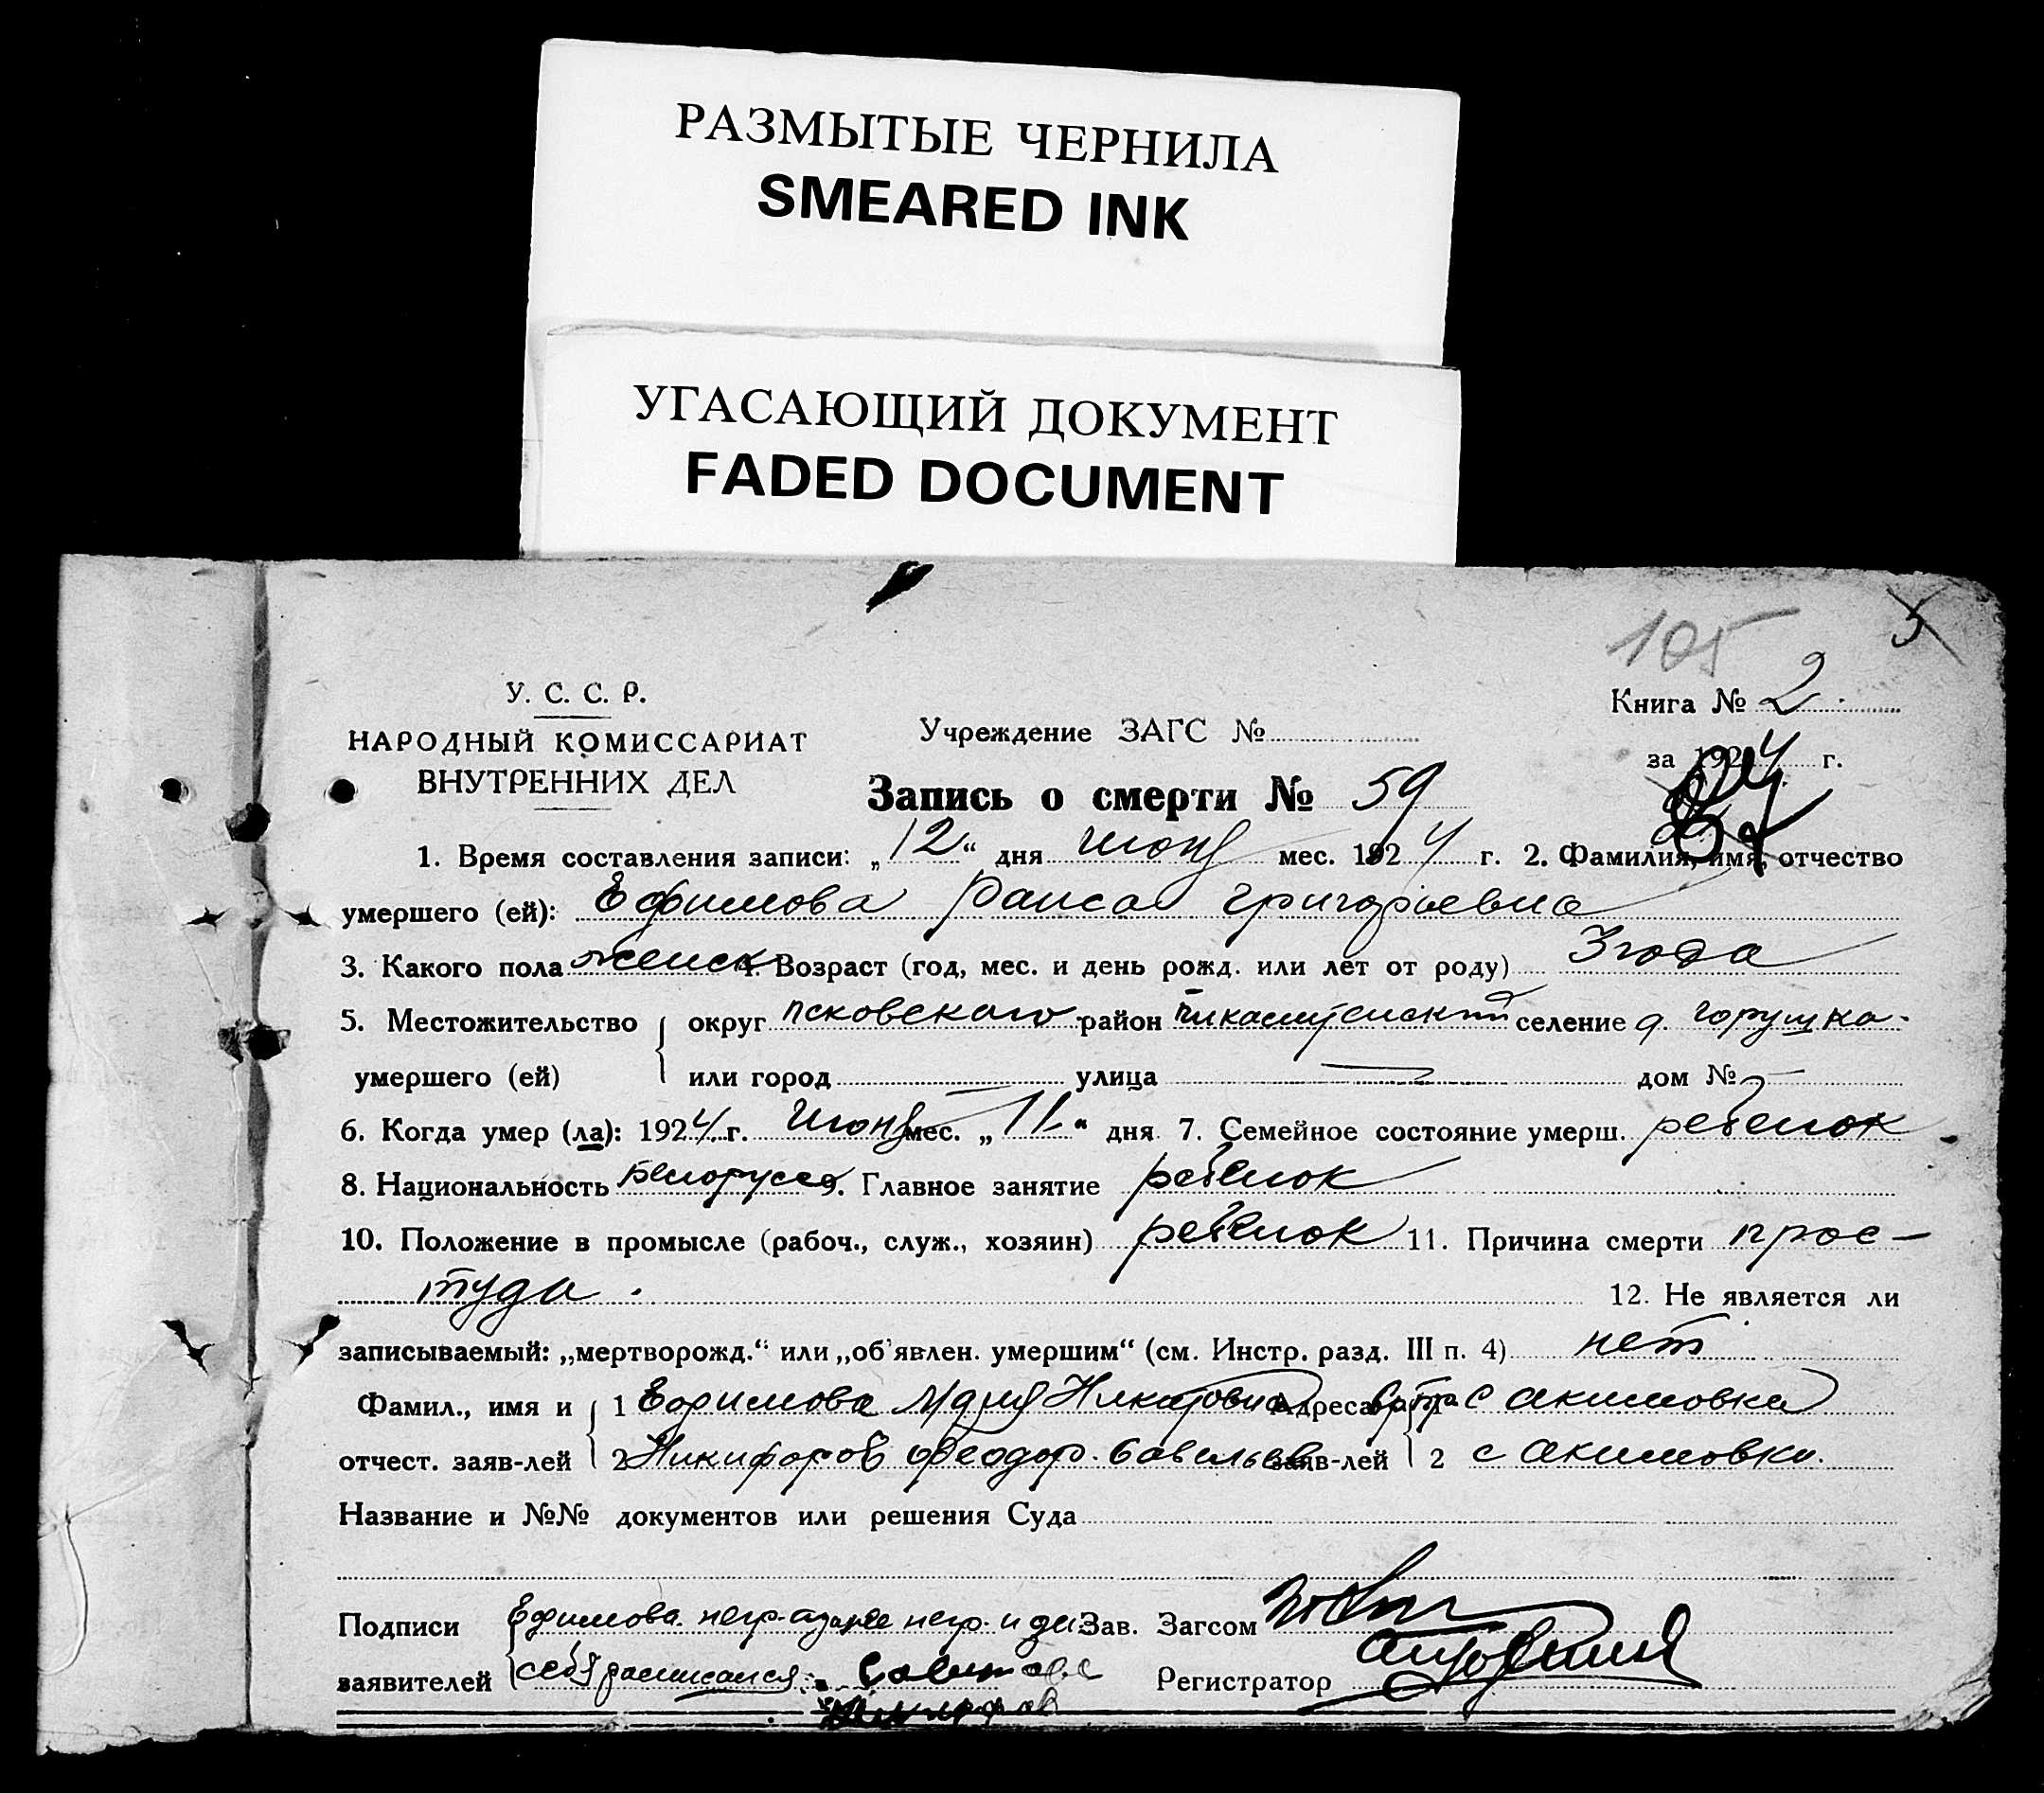 РАЗМЫТЫЕ ЧЕРНИЛА
SMEARED INK
УГАСАЮЩИЙ ДОКУМЕНТ
FADED DOCUMENT
105
У. С. С. Р.
НАРОДНЫЙ КОМИССАРИАТ
ВНУТРЕННИХ ДЕЛ
Учреждение ЗАГС №
Книга № 2
за 1924 г.
Запись о смерти № 59
1. Время составления записи: „12“ дня июня мес. 1924 г. 2. Фамилия, имя, отчество
умершего (ей): Ефимова Раиса Григорьевна
3. Какого пола женск 4. Возраст (год, мес. и день рожд. или лет от роду) 3 года
5. Местожительство округ псковского район селение д. горушка
умершего (ей) или город улица — дом № —
6. Когда умер (ла): 1924 г. июня мес. „11“ дня 7. Семейное состояние умерш. ребенок
8. Национальность Белорусс 9. Главное занятие ребенок
10. Положение в промысле (рабоч., служ., хозяин) ребенок 11. Причина смерти прос-
туда. 12. Не является ли
записываемый: „мертворожд.“ или „об'явлен. умершим“ (см. Инстр. разд. III п. 4) нет
Фамил., имя и 1 Ефимова Адреса 1 с Акимовка
отчест. заяв-лей 2 Никифоров Феодор Савельев заяв-лей 2 с Акимовка
Название и №№ документов или решения Суда
Подписи Ефимова негр. а за нее негр. и за Зав. Загсом
заявителей себя расписался: Регистратор
Никифоров